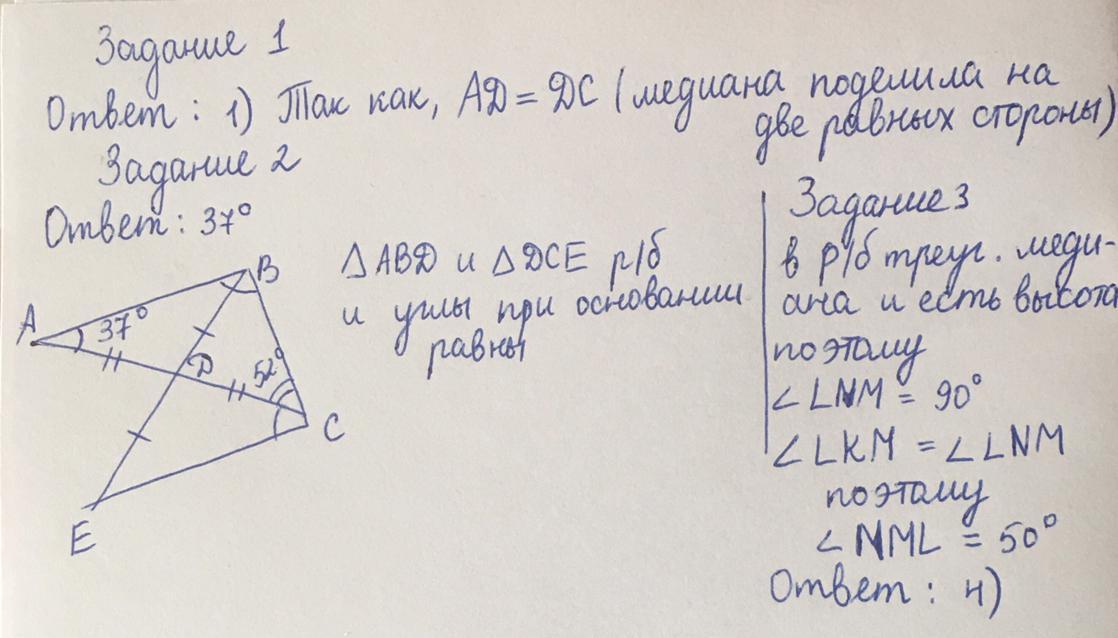 Задание 1
Ответ: 1) Так как, AD = DC (медиана поделила на
две равных стороны)
Задание 2
Ответ: 37°
A
37°
B
D
52°
C
E
△ABD и △DCE р/б
и углы при основании
равны
Задание 3
в р/б треуг. меди-
ана и есть высота
поэтому
∠LNM = 90°
∠LKM = ∠LNM
поэтому
∠NML = 50°
Ответ: 4)